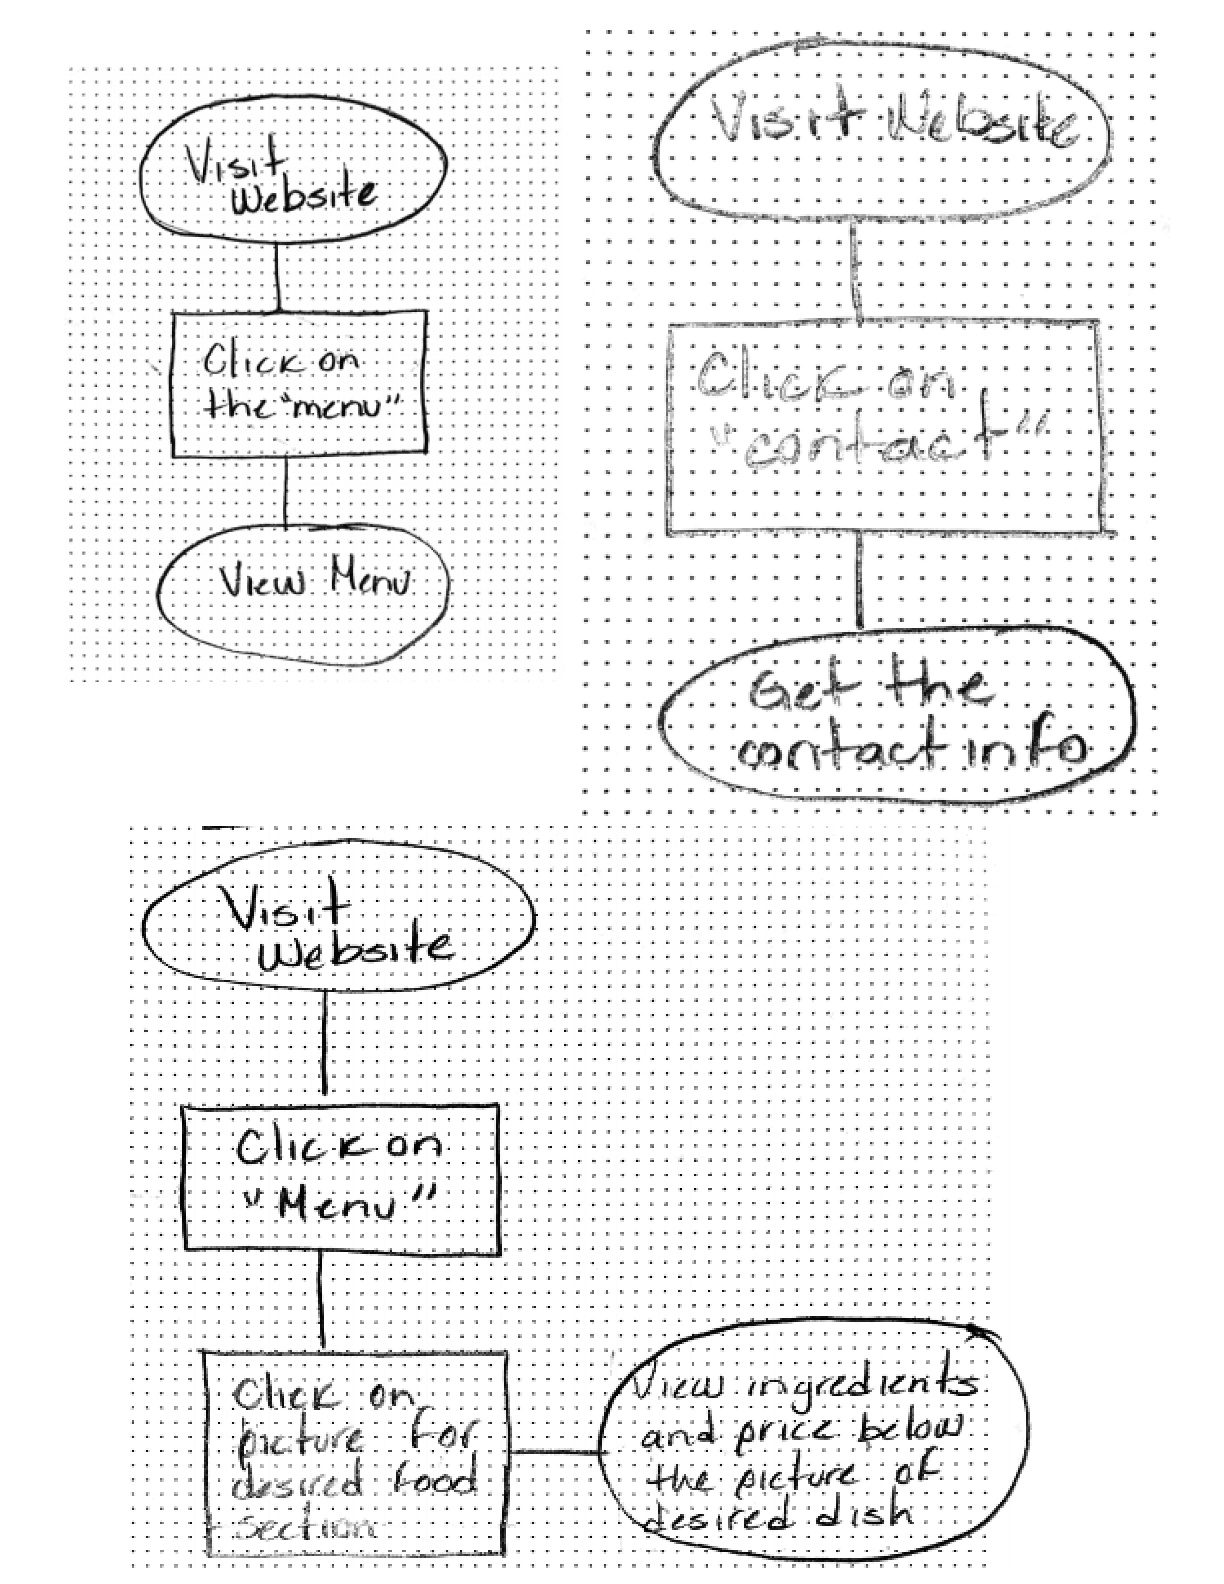 Visit
Website
Click on
the "menu"
View Menu
Visit Website
Click on
"contact"
Get the
contact info
Visit
Website
Click on
"Menu"
Click on
picture for
desired food
section
View ingredients
and price below
the picture of
desired dish